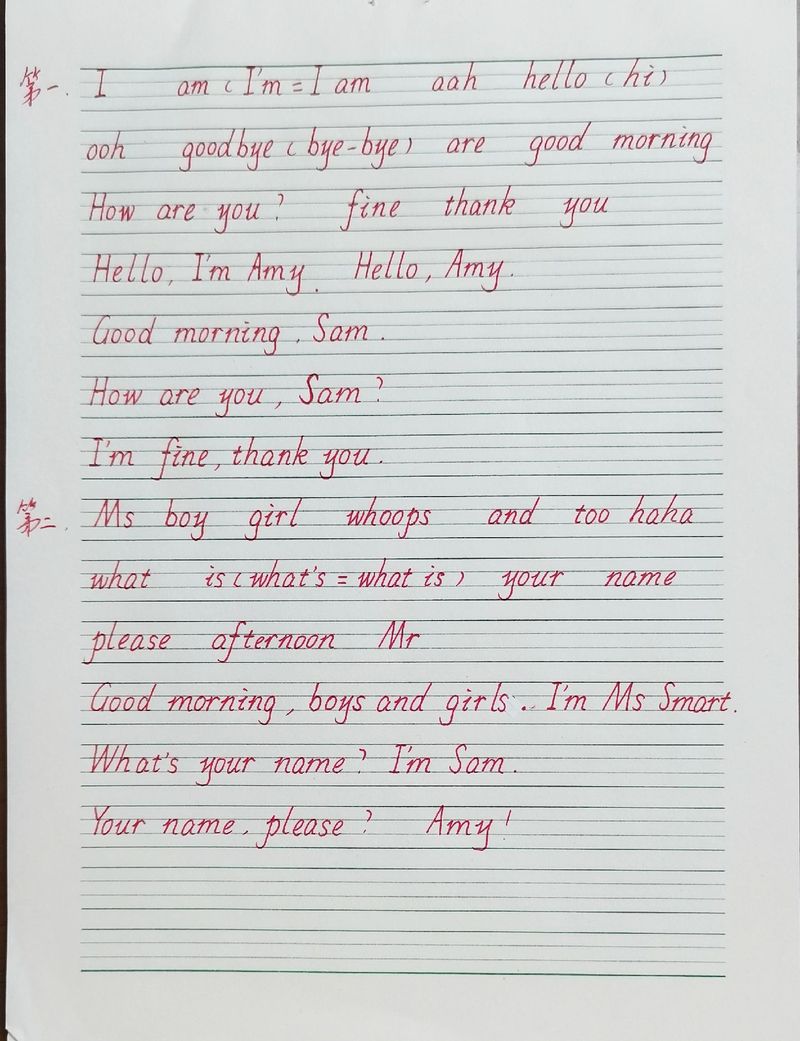 第一. I am ( I'm = I am aah hello ( hi )
ooh goodbye ( bye-bye ) are good morning
How are you? fine thank you
Hello, I'm Amy. Hello, Amy.
Good morning, Sam.
How are you, Sam?
I'm fine, thank you.
第二. Ms boy girl whoops and too haha
what is ( what's = what is ) your name
please afternoon Mr
Good morning, boys and girls.. I'm Ms Smart.
What's your name? I'm Sam.
Your name, please? Amy!